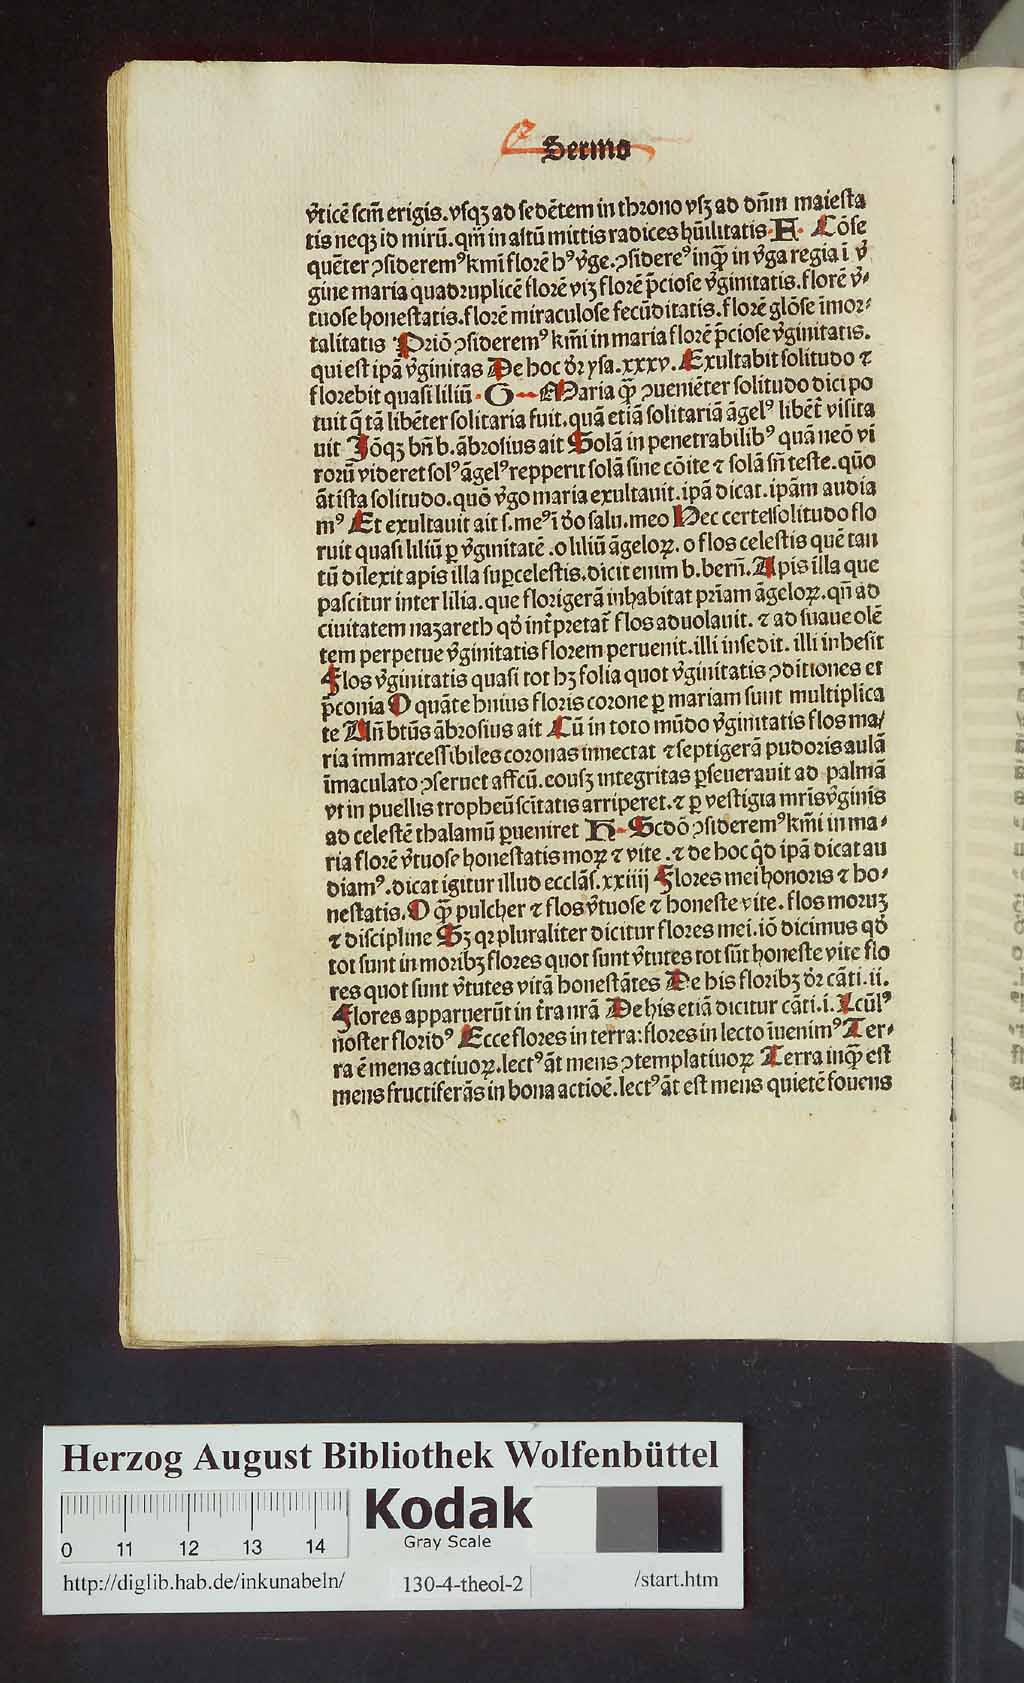 Sermo
v̄ticē scm̄ erigis. vsqꝫ ad sedētem in throno vsꝫ ad dn̄m maiesta
tis neqꝫ id mirū. qm̄ in altū mittis radices hūilitatis. F. Cōse
quēter ↄsideremꝰ kmi florē hꝰ v̄ge. ↄsidereꝰ inqꝫ in v̄ga regia ī v̄
gine maria quadruplicē florē viꝫ florē p̄ciose v̄ginitatis. florē v̄-
tuose honestatis. florē miraculose fecūditatis. florē glōse īmor-
talitatis Priō ↄsideremꝰ km̄i in maria florē p̄ciose v̄ginitatis.
qui est ipā v̄ginitas De hoc dr̄ ysa. xxxv. Exultabit solitudo ⁊
florebit quasi liliū. G Maria qꝫ ↄueniēter solitudo dici po
tuit q̄ tā libēter solitaria fuit. quā etiā solitariā āgelꝰ libēt̄ visita
uit Iōqꝫ bn̄ b. ābrosius ait Solā in penetrabilibꝰ quā neō vi
rorū videret solꝰ āgelꝰ repperit solā sine cōite ⁊ solā sn̄ teste. quō
āt ista solitudo. quō v̄go maria exultauit. ipā dicat. ipām audia
mꝰ Et exultauit ait s. meꝰ ī deo salu. meo Hec certe solitudo flo
ruit quasi liliū ꝑ v̄ginitatē. o liliū āgeloꝝ. o flos celestis quē tan
tū dilexit apis illa suꝑcelestis. dicit enim b. bern̄. Apis illa que
pascitur inter lilia. que florigerā inhabitat pr̄iam āgeloꝝ. qn̄ ad
ciuitatem nazareth qd̄ int̄pretat̄ flos aduolauit. ⁊ ad suaue olē
tem perpetue v̄ginitatis florem peruenit. illi insedit. illi inhesit
Flos v̄ginitatis quasi tot hꝫ folia quot v̄ginitatis ↄditiones et
p̄conia O quāte huius floris corone ꝑ mariam sunt multiplica
te Un̄ btūs ābrosius ait Cū in toto mūdo v̄ginitatis flos ma/
ria immarcessibiles coronas innectat ⁊ septigerā pudoris aulā
īmaculato ↄseruet affcū. eousꝫ integritas ꝑseuerauit ad palmā
vt in puellis tropheū scītatis arriperet. ⁊ ꝑ vestigia mr̄is v̄ginis
ad celestē thalamū ꝑueniret H Scdō ↄsideremꝰ km̄i in ma-
ria florē v̄tuose honestatis moꝝ ⁊ vite. ⁊ de hoc qd̄ ipā dicat au
diamꝰ. dicat igitur illud ecclās. xxiiij Flores mei honoris ⁊ ho-
nestatis. O qꝫ pulcher ⁊ flos v̄tuose ⁊ honeste vite. flos moruꝫ
⁊ discipline Sꝫ qꝛ pluraliter dicitur flores mei. iō dicimus qd̄
tot sunt in moribꝫ flores quot sunt v̄tutes tot sūt honeste vite flo
res quot sunt v̄tutes vitā honestātes De his floribꝫ dr̄ cāti. ii.
Flores apparuerūt in t̄ra nrā De his etiā dicitur cāti. i. Lcūlꝰ
noster floridꝰ Ecce flores in terra: flores in lecto iuenimꝰ Ter-
ra ē mens actiuoꝝ. lectꝰ āt mens ↄtemplatiuoꝝ Terra inqꝫ est
mens fructiferās in bona actioē. lectꝰ āt est mens quietē fouens
Herzog August Bibliothek Wolfenbüttel
Kodak
Gray Scale
0 11 12 13 14
http://diglib.hab.de/inkunabeln/ 130-4-theol-2 /start.htm